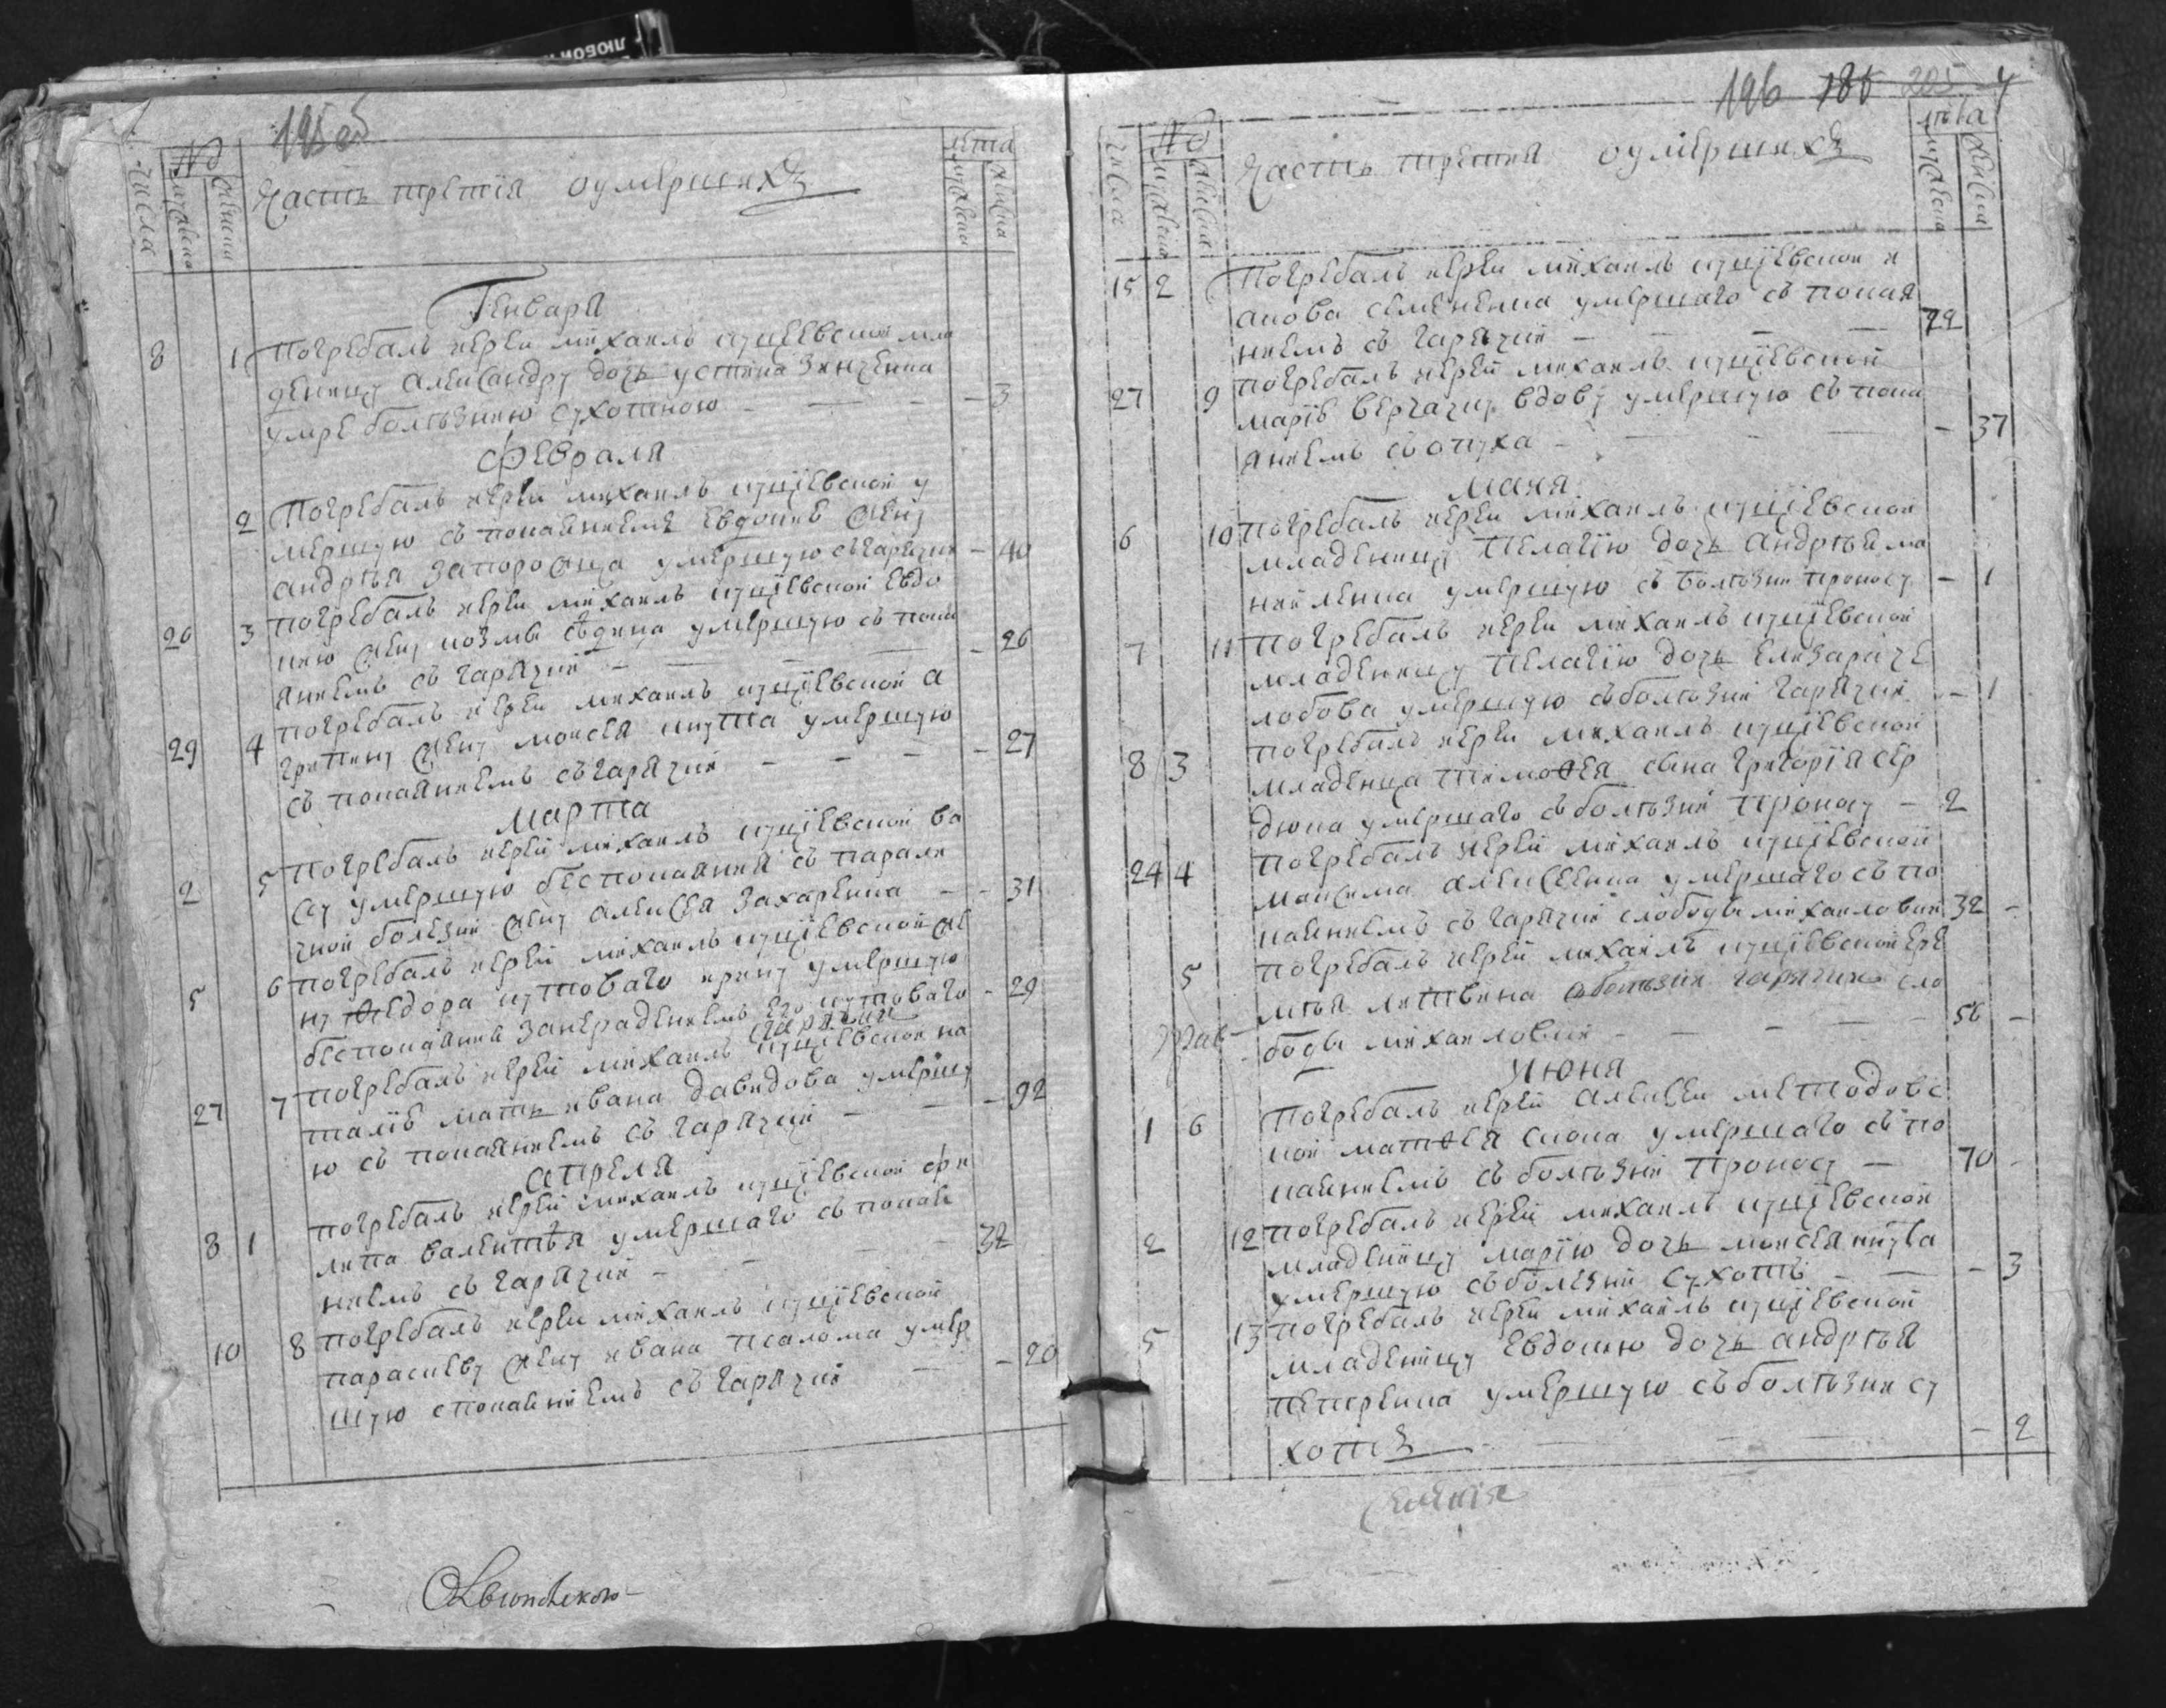 195 об
числа
№
мужеска
женска
Часть третія о умершихъ
лета
мужеска
женска
Генваря
8 1 Погребалъ иерей михаилъ куцѣевской мла
деницу александру дочь устина зинченка
умре болѣзнию сухотною - - - 3
Февраля
2 Погребалъ иерей михаилъ куцїевской у
мершую съ покаяниемъ евдокию жену
андрѣя запорожца умершую съ гарячки - 40
26 3 погребалъ иерей михаилъ куцїевской евдо
кию жену козмы умершую съ пока
яниемъ съ гарячки - - - 26
29 4 погребалъ иерей михаилъ куцїевской а
грипину жену моисея кнута умершую
съ покаяниемъ съ гарячки - - - 27
Марта
2 5 погребалъ иерей михаилъ куцїевской ва
су умершую беспокаяния съ парали
чной болезни жену алексея захаренка - - 31
5 6 погребалъ иерей михаилъ куцїевской же
ну ѳедора кутоваго ирину умершую
беспокаяния занерадениемъ его кутоваго - 29
гарячки
27 7 погребалъ иерей михаилъ куцїевской на
талїю мать ивана давидова умершу
ю съ покаяниемъ съ гарячки - - - 92
априля
8 1 погребалъ иерей михаилъ куцїевской фи
липа умершаго съ покая
ниемъ съ гарячки - - - 32
10 8 погребалъ иерей михаилъ куцїевской
параскеву жену ивана псалома умер
шую спокаяниемъ съ гарячки - - 20
196 186 205 4
числа
№
мужеска
женска
Часть третия о умершихъ
лѣта
мужеска
женска
15 2 Погребалъ иерей михаилъ куцїевской и
акова семененка умершаго съ покая
ниемъ съ гарячки - - - 72
27 9 погребалъ иерей михаилъ куцїевской
марїю вдову умершую съ пока
яниемъ съ опуха - - - - 37
маия
6 10 погребалъ иерей михаилъ куцїевской
младеницу пелагїю дочь андрѣя ма
умершую съ болѣзни проносу - 1
7 11 погребалъ иерей михаилъ куцїевской
младеницу пелагїю дочь елизара че
лобова умершую съ болѣзни гарячки - 1
8 3 погребалъ иерей михаилъ куцїевской
младенца тимоѳея сына григорїя сер
дюка умершаго съ болѣзни проносу - 2
24 4 погребалъ иерей михаилъ куцїевской
максима алексеенка умершаго съ по
каяниемъ съ гарячки слободы михаиловки 32 -
5 погребалъ иерей михаилъ куцїевской ере
мѣя литвина съ болѣзни гарячки сло
боды михаиловки - - - 56 -
Июня
1 6 Погребалъ иерей алексей методовс
кой матѳея скока умершаго съ по
каяниемъ съ болѣзни проносу - 70 -
2 12 погребалъ иерей михаилъ куцїевской
младеницу марїю дочь моисея кнута
умершую съ болезни сухоты - - - 3
5 13 погребалъ иерей михаилъ куцїевской
младеницу евдокию дочь андрѣя
петренка умершую съ болѣзни су
хоты - - - 2